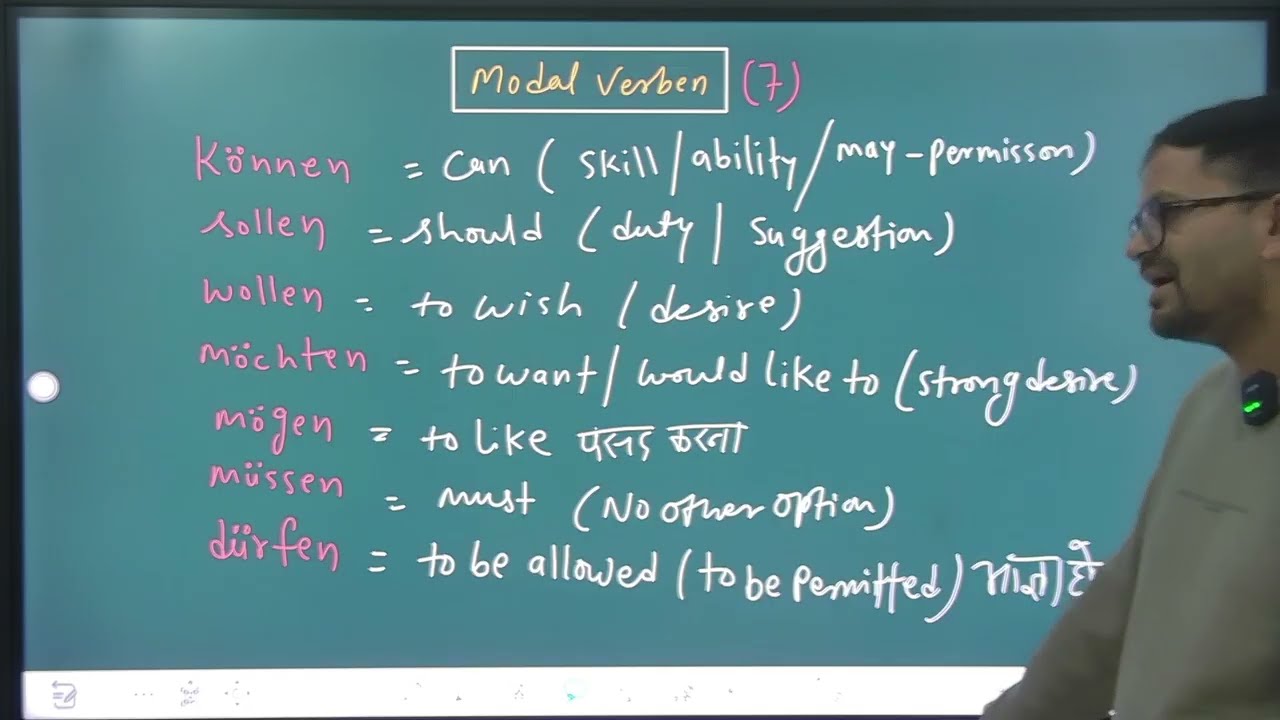 Modal Verben (7)
können = can (skill/ability/may-permisson)
sollen = should (duty/suggestion)
wollen = to wish (desire)
möchten = to want/would like to (strong desire)
mögen = to like पसंद करना
müssen = must (No other option)
dürfen = to be allowed (to be permitted)